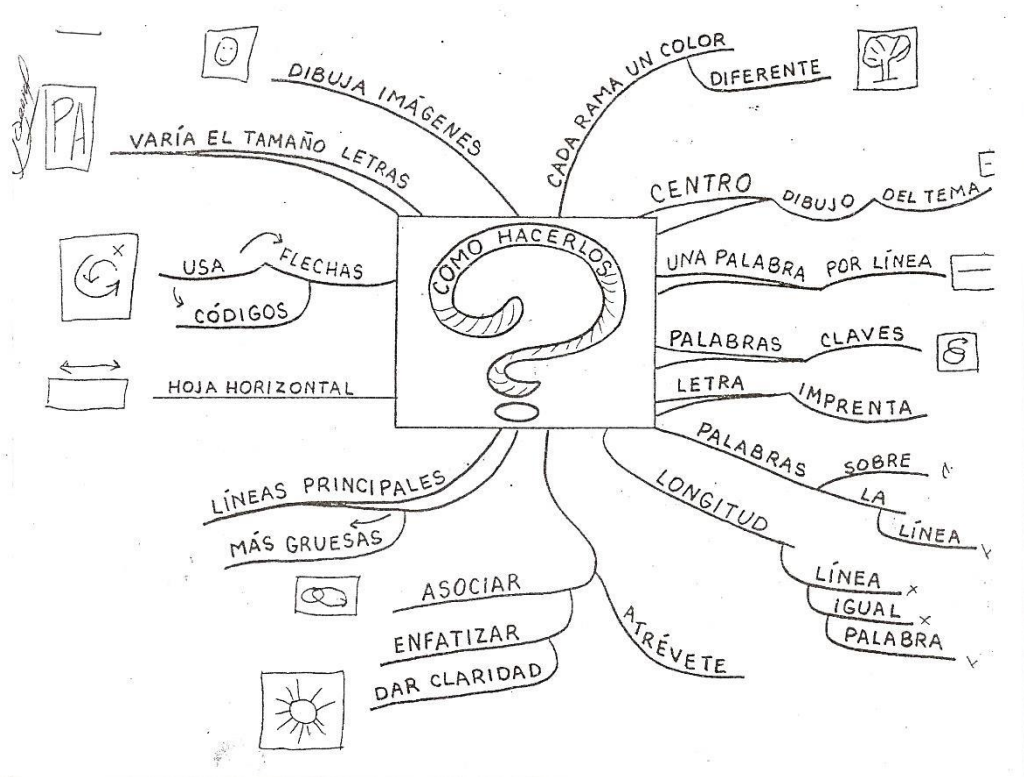 CÓMO HACERLOS
CADA RAMA UN COLOR
DIFERENTE
CENTRO
DIBUJO
DEL TEMA
E
UNA PALABRA
POR LÍNEA
PALABRAS
CLAVES
LETRA
IMPRENTA
PALABRAS
SOBRE
LA
LÍNEA
LONGITUD
LÍNEA
IGUAL
PALABRA
ATRÉVETE
ASOCIAR
ENFATIZAR
DAR CLARIDAD
LÍNEAS PRINCIPALES
MÁS GRUESAS
HOJA HORIZONTAL
USA
FLECHAS
CÓDIGOS
VARÍA EL TAMAÑO LETRAS
PA
DIBUJA IMÁGENES